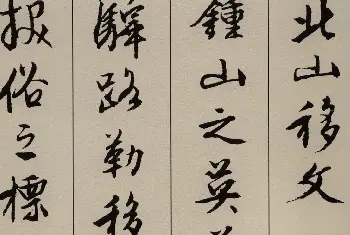 北山移文
鍾山之英
驛路勒移
拔俗之標